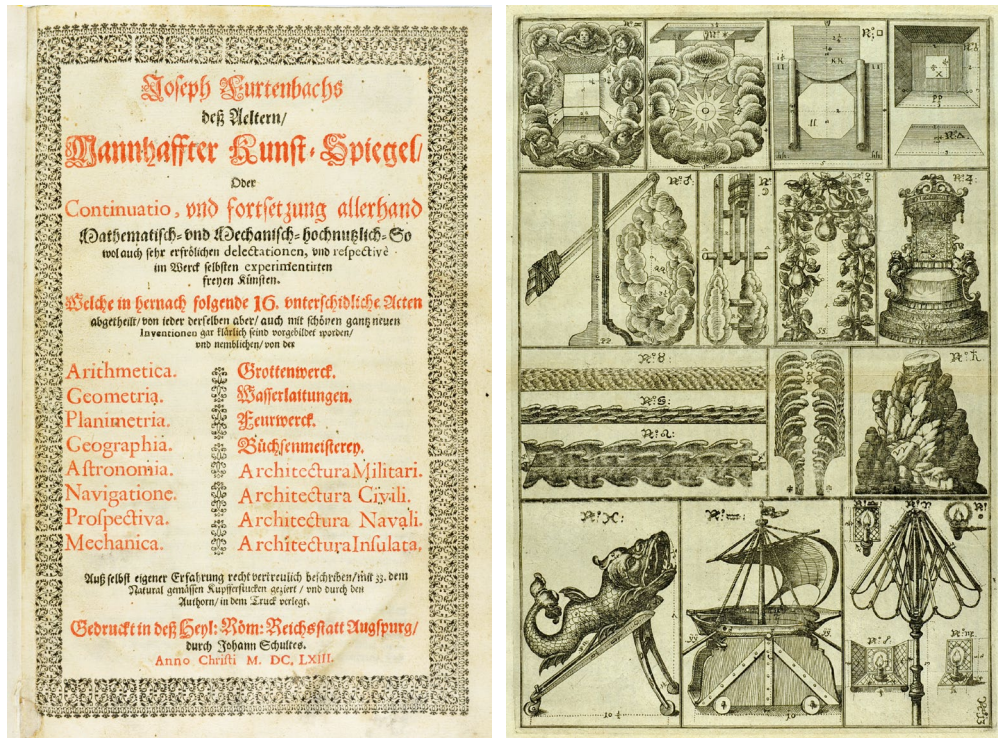 Joseph Furtenbachs
deß Aeltern/
Mannhaffter Kunst-Spiegel/
Oder
Continuatio, vnd fortsetzung allerhand
Mathematisch- vnd Mechanisch- hochnutzlich- So
wol auch sehr erfrölichen delectationen, vnd respectivè
im Werck selbsten experimentirten
freyen Künsten.
Welche in hernach folgende 16. vnterschidliche Acten
abgetheilt/ von ieder derselben aber/ auch mit schönen gantz neuen
Inventionen gar klärlich seind vorgebildet worden/
vnd nemblichen/ von der
Arithmetica.
Geometria.
Planimetria.
Geographia.
Astronomia.
Navigatione.
Prospectiva.
Mechanica.
Grottenwerck.
Wasserlaitungen.
Feurwerck.
Büchsenmeisterey.
Architectura Militari.
Architectura Civili.
Architectura Navali.
Architectura Insulata,
Auß selbst eigener Erfahrung recht vertreulich beschriben/ mit 33. dem
Natural gemässen Kupfferstucken geziert/ vnd durch den
Authorn/ in dem Truck verlegt.
Gedruckt in deß Heyl: Röm: Reichsstatt Augspurg/
durch Johann Schultes.
Anno Christi M. DC. LXIII.